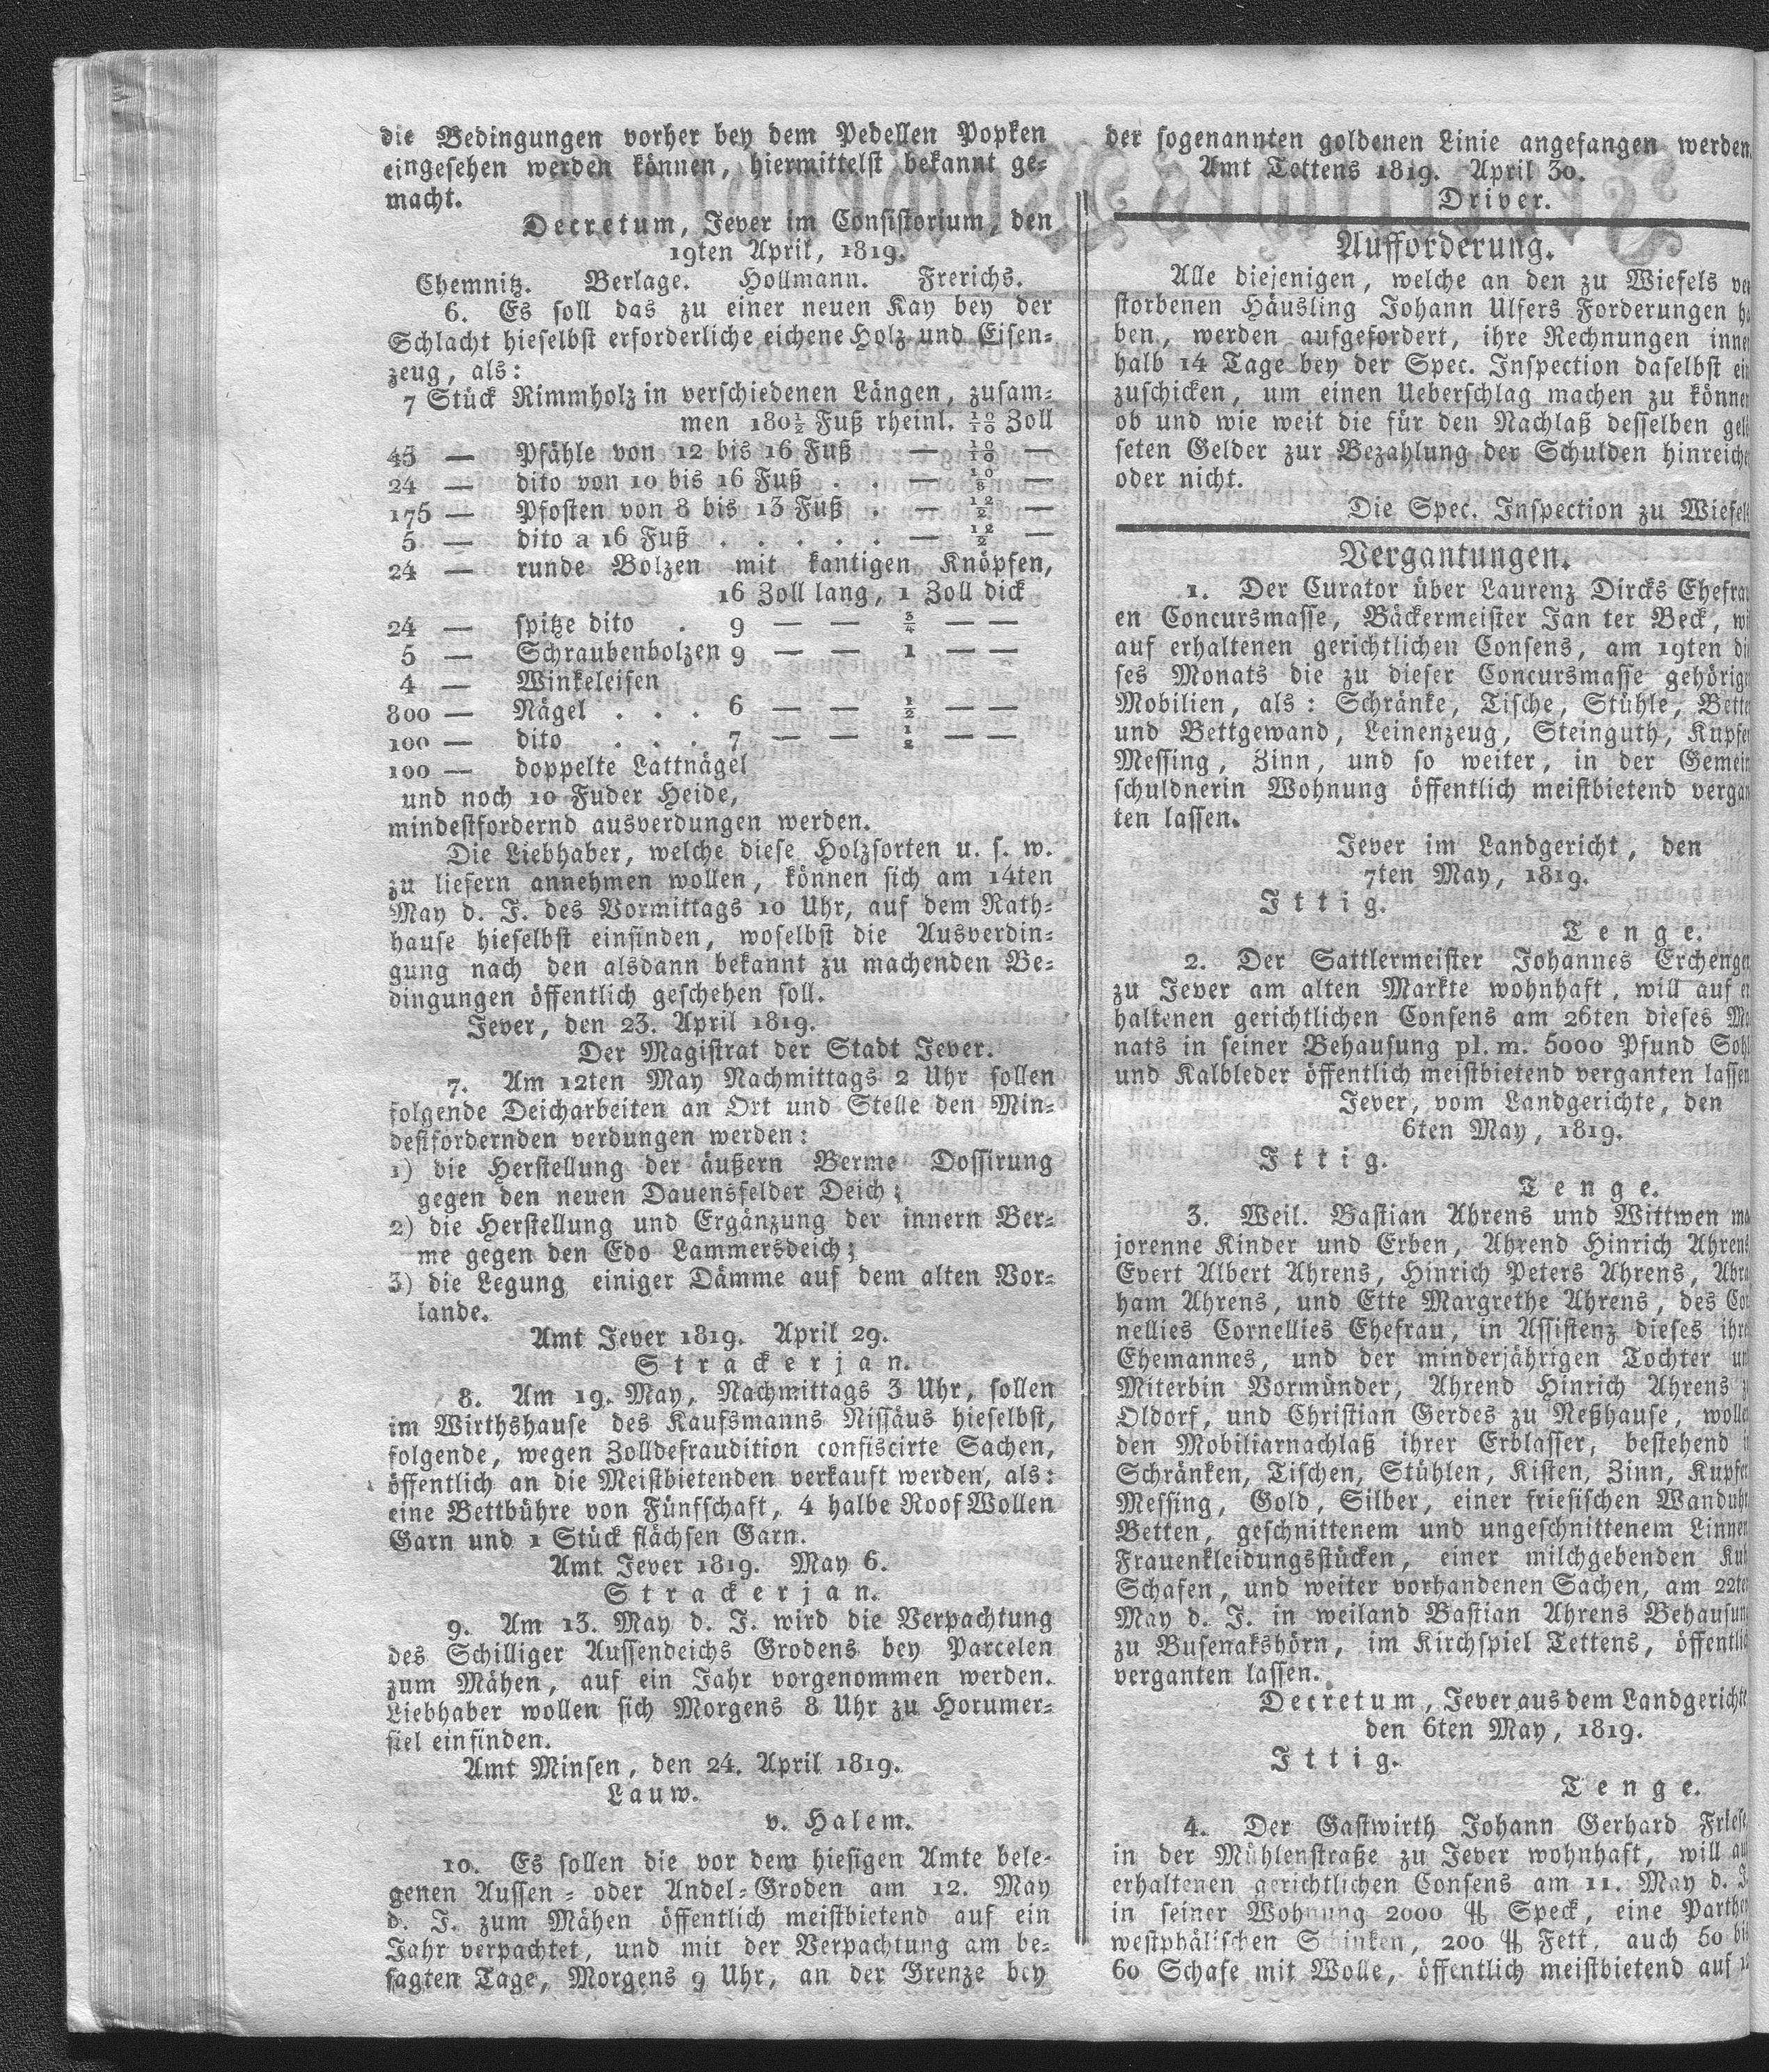 die Bedingungen vorher bey dem Pedellen Popken
eingesehen werden können, hiermittelst bekannt ge-
macht.
Decretum, Jever im Consistorium, den
19ten April, 1819.
Chemnitz. Berlage. Hollmann. Frerichs.
6. Es soll das zu einer neuen Kay bey der
Schlacht hieselbst erforderliche eichene Holz und Eisen-
zeug, als:
7 Stück Rimmholz in verschiedenen Längen, zusam-
men 180 1/2 Fuß rheinl. 10/10 Zoll
45 — Pfähle von 12 bis 16 Fuß — 10/10 —
24 — dito von 10 bis 16 Fuß . . — 10/8 —
175 — Pfosten von 8 bis 13 Fuß . — 12/2 —
5 — dito a 16 Fuß . . . . . — 12/2 —
24 — runde Bolzen mit kantigen Knöpfen,
16 Zoll lang, 1 Zoll dick
24 — spitze dito . 9 — — 3/4 — —
5 — Schraubenbolzen 9 — — 1 — —
4 — Winkeleisen
800 — Nägel . . . 6 — — 1/2 — —
100 — dito . . . 7 — — 1/2 — —
100 — doppelte Lattnägel
und noch 10 Fuder Heide,
mindestfordernd ausverdungen werden.
Die Liebhaber, welche diese Holzsorten u. s. w.
zu liefern annehmen wollen, können sich am 14ten
May d. J. des Vormittags 10 Uhr, auf dem Rath-
hause hieselbst einfinden, woselbst die Ausverdin-
gung nach den alsdann bekannt zu machenden Be-
dingungen öffentlich geschehen soll.
Jever, den 23. April 1819.
Der Magistrat der Stadt Jever.
7. Am 12ten May Nachmittags 2 Uhr sollen
folgende Deicharbeiten an Ort und Stelle den Min-
destfordernden verdungen werden:
1) die Herstellung der äußern Berme Dossirung
gegen den neuen Dauensfelder Deich;
2) die Herstellung und Ergänzung der innern Ber-
me gegen den Edo Lammersdeich;
3) die Legung einiger Dämme auf dem alten Vor-
lande.
Amt Jever 1819. April 29.
Strackerjan.
8. Am 19. May, Nachmittags 3 Uhr, sollen
im Wirthshause des Kaufsmanns Nissäus hieselbst,
folgende, wegen Zolldefraudition confiscirte Sachen,
öffentlich an die Meistbietenden verkauft werden, als:
eine Bettbühre von Fünfschaft, 4 halbe Roof Wollen
Garn und 1 Stück flächsen Garn.
Amt Jever 1819. May 6.
Strackerjan.
9. Am 13. May d. J. wird die Verpachtung
des Schilliger Aussendeichs Grodens bey Parcelen
zum Mähen, auf ein Jahr vorgenommen werden.
Liebhaber wollen sich Morgens 8 Uhr zu Horumer-
siel einfinden.
Amt Minsen, den 24. April 1819.
Lauw.
v. Halem.
10. Es sollen die vor dem hiesigen Amte bele-
genen Aussen- oder Andel-Groden am 12. May
d. J. zum Mähen öffentlich meistbietend auf ein
Jahr verpachtet, und mit der Verpachtung am be-
sagten Tage, Morgens 9 Uhr, an der Grenze bey
der sogenannten goldenen Linie angefangen werden.
Amt Tettens 1819. April 30.
Driver.
Aufforderung.
Alle diejenigen, welche an den zu Wiefels ver
storbenen Häusling Johann Ulfers Forderungen ha
ben, werden aufgefordert, ihre Rechnungen inner
halb 14 Tage bey der Spec. Inspection daselbst ein
zuschicken, um einen Ueberschlag machen zu können
ob und wie weit die für den Nachlaß desselben gelö
seten Gelder zur Bezahlung der Schulden hinreichen
oder nicht.
Die Spec. Inspection zu Wiefels
Vergantungen.
1. Der Curator über Laurenz Dircks Ehefrau
en Concursmasse, Bäckermeister Jan ter Beck, will
auf erhaltenen gerichtlichen Consens, am 19ten die
ses Monats die zu dieser Concursmasse gehörigen
Mobilien, als: Schränke, Tische, Stühle, Betten
und Bettgewand, Leinenzeug, Steinguth, Kupfer
Messing, Zinn, und so weiter, in der Gemein
schuldnerin Wohnung öffentlich meistbietend vergan
ten lassen.
Jever im Landgericht, den
7ten May, 1819.
Ittig.
Tenge.
2. Der Sattlermeister Johannes Erchenger
zu Jever am alten Markte wohnhaft, will auf er
haltenen gerichtlichen Consens am 26ten dieses Mo
nats in seiner Behausung pl. m. 5000 Pfund Sohl
und Kalbleder öffentlich meistbietend verganten lassen
Jever, vom Landgerichte, den
6ten May, 1819.
Ittig.
Tenge.
3. Weil. Bastian Ahrens und Wittwen ma
jorenne Kinder und Erben, Ahrend Hinrich Ahrens
Evert Albert Ahrens, Hinrich Peters Ahrens, Abra
ham Ahrens, und Ette Margrethe Ahrens, des Cor
nellies Cornellies Ehefrau, in Assistenz dieses ihres
Ehemannes, und der minderjährigen Tochter und
Miterbin Vormünder, Ahrend Hinrich Ahrens z
Oldorf, und Christian Gerdes zu Neßhause, wollen
den Mobiliarnachlaß ihrer Erblasser, bestehend in
Schränken, Tischen, Stühlen, Kisten, Zinn, Kupfer
Messing, Gold, Silber, einer friesischen Wanduhr
Betten, geschnittenem und ungeschnittenem Linnen
Frauenkleidungsstücken, einer milchgebenden Kuh
Schafen, und weiter vorhandenen Sachen, am 22ten
May d. J. in weiland Bastian Ahrens Behausung
zu Busenakshörn, im Kirchspiel Tettens, öffentlich
verganten lassen.
Decretum, Jever aus dem Landgerichte
den 6ten May, 1819.
Ittig.
Tenge.
4. Der Gastwirth Johann Gerhard Friese
in der Mühlenstraße zu Jever wohnhaft, will auf
erhaltenen gerichtlichen Consens am 11. May d. J.
in seiner Wohnung 2000 ℔ Speck, eine Parthey
westphälischen Schinken, 200 ℔ Fett, auch 50 bis
60 Schafe mit Wolle, öffentlich meistbietend auf